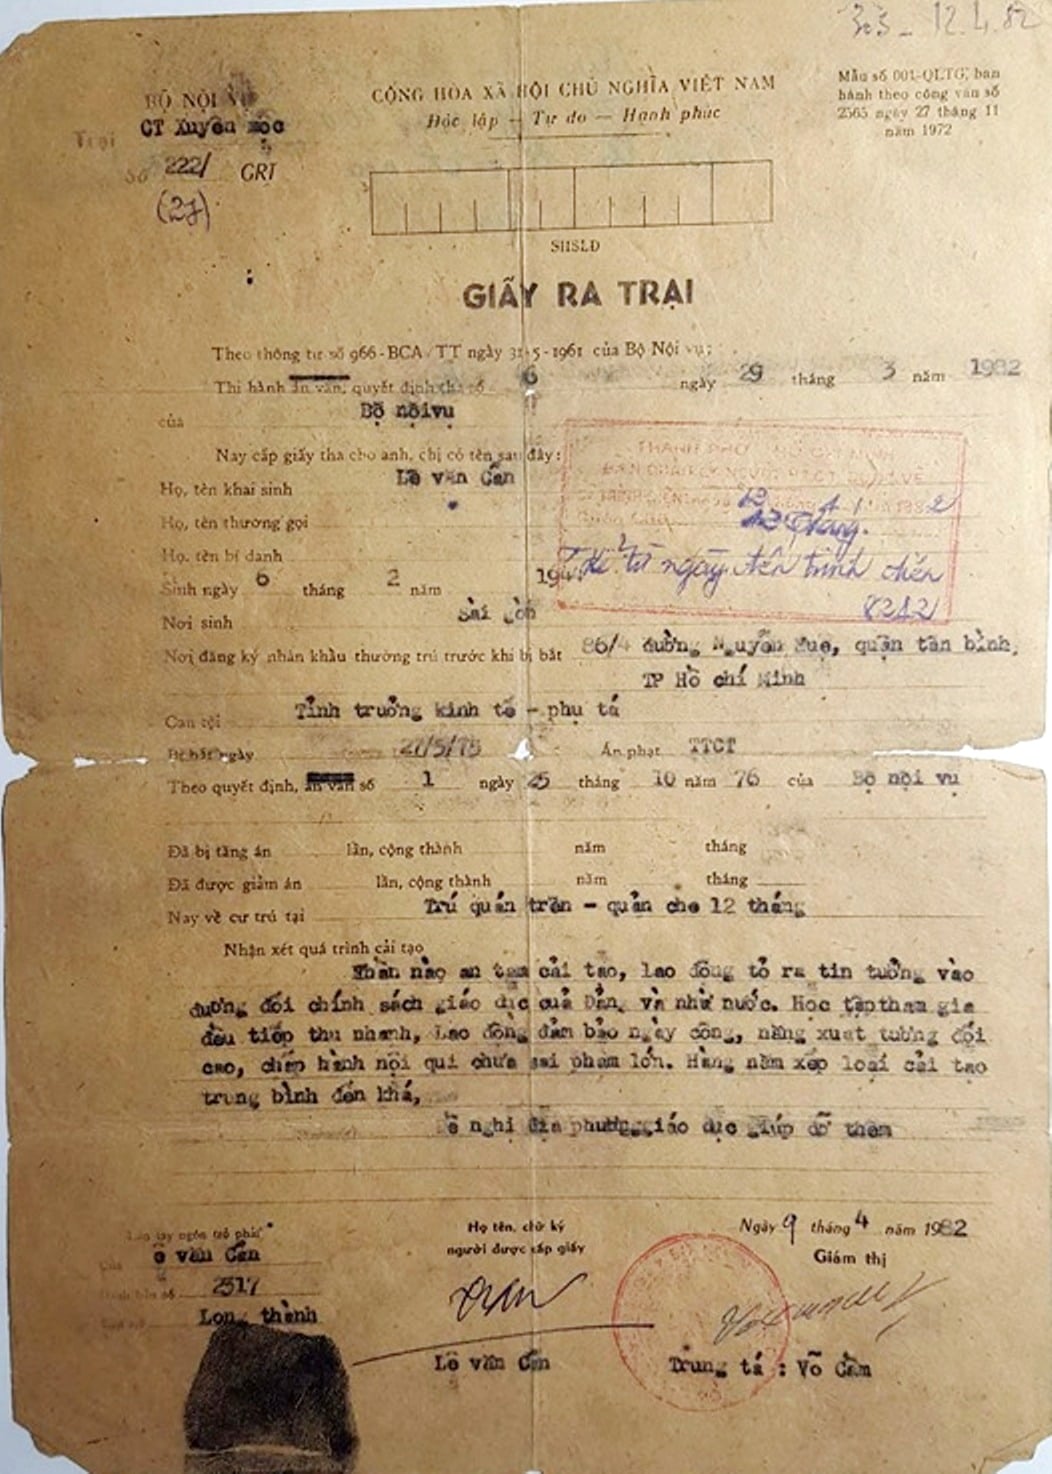 303 - 12.4.82
BỘ NỘI VỤ
Trại CT Xuyên mộc
Số 222/ GRT
(27)
CỘNG HÒA XÃ HỘI CHỦ NGHĨA VIỆT NAM
Độc lập — Tự do — Hạnh phúc
Mẫu số 001-QLTG, ban
hành theo công văn số
2565 ngày 27 tháng 11
năm 1972
SHSLĐ
GIẤY RA TRẠI
Theo thông tư số 966-BCA/TT ngày 31-5-1961 của Bộ Nội vụ;
Thi hành án văn, quyết định tha số 6 ngày 29 tháng 3 năm 1982
của Bộ nội vụ
Nay cấp giấy tha cho anh, chị có tên sau đây:
Họ, tên khai sinh Lê văn Cẩn
Họ, tên thường gọi
Họ, tên bí danh
Sinh ngày 6 tháng 2 năm
Nơi sinh Sài gòn
THÀNH PHỐ HỒ CHÍ MINH
12 tháng.
Kể từ ngày đến trình diện
Nơi đăng ký nhân khẩu thường trú trước khi bị bắt 86/4 đường Nguyễn Huệ, quận tân bình,
TP Hồ chí Minh
Can tội Tỉnh trưởng kinh tế - phụ tá
Bị bắt ngày 27/5/75 Án phạt TTCT
Theo quyết định, án văn số 1 ngày 25 tháng 10 năm 76 của Bộ nội vụ
Đã bị tăng án lần, cộng thành năm tháng
Đã được giảm án lần, cộng thành năm tháng
Nay về cư trú tại Trú quán trên - quản chế 12 tháng
Nhận xét quá trình cải tạo
Phần nào an tam cải tạo, lao động tỏ ra tin tưởng vào
đường đối chính sách giáo dục của Đảng và nhà nước. Học tập tham gia
đều tiếp thu nhanh, Lao động đảm bảo ngày công, năng xuất tương đối
cao, chấp hành nội qui chưa sai phạm lớn. Hàng năm xếp loại cải tạo
trung bình đến khá,
Đề nghị địa phương giáo dục giúp đỡ thêm
Lăn tay ngón trỏ phải
Của Lê văn Cẩn
Danh bản số 2517
Long thành
Họ tên, chữ ký
người được cấp giấy
Lê văn Cẩn
Ngày 9 tháng 4 năm 1982
Giám thị
Trung tá : Võ Cầm